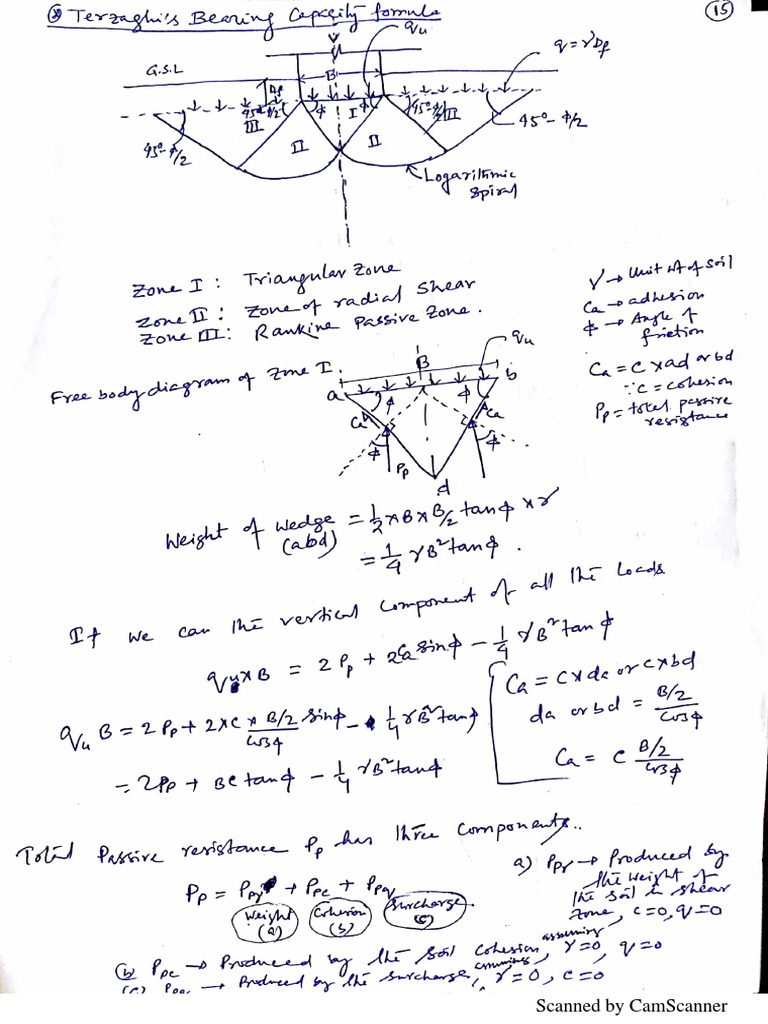 ⊛ Terzaghi's Bearing Capacity formula
15
qu
q = γDf
G.S.L
B
Df
45°-ϕ/2
ϕ
I
ϕ
45°-ϕ/2
III
III
II
II
45°-ϕ/2
45°-ϕ/2
Logarithmic
spiral
Zone I : Triangular Zone
Zone II : Zone of radial shear
Zone III: Rankine Passive Zone.
γ → Unit wt of soil
Ca → adhesion
ϕ → Angle of
friction
Ca = c x ad or bd
∵ c = cohesion
Pp = total passive
resistance
Free body diagram of Zone I.
B
qu
a
b
ϕ
ϕ
Ca
Ca
ϕ
ϕ
Pp
d
Weight of Wedge = 1/2 x B x B/2 tanϕ x γ
(abd)
= 1/4 γB² tanϕ .
If we can the vertical component of all the loads
qu x B = 2Pp + 2Ca sinϕ - 1/4 γB² tanϕ
qu B = 2Pp + 2xc x B/2 / cosϕ sinϕ - 1/4 γB² tanϕ
= 2Pp + Bc tanϕ - 1/4 γB² tanϕ
Ca = c x da or c x bd
da or bd = B/2 / cosϕ
Ca = c B/2 / cosϕ
Total Passive resistance Pp has three components..
Pp = Ppγ + Ppc + Ppq
Weight (a) Cohesion (b) Surcharge (c)
a) Ppγ → Produced by
the weight of
the soil in shear
zone, c=0, q=0
(b) Ppc → Produced by the soil cohesion assuming γ=0, q=0
(c) Ppq → Produced by the surcharge, assuming, γ=0, c=0
Scanned by CamScanner